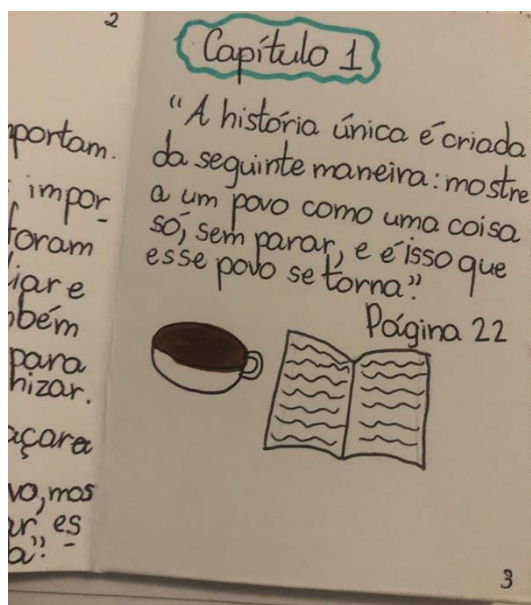 2
portam.
impor
foram
iar e
bém
para
nizar.
açara
vo, mos
ur es
a".
Capítulo 1
"A história única é criada
da seguinte maneira: mostre
a um povo como uma coisa
só, sem parar, e é isso que
esse povo se torna".
Página 22
3